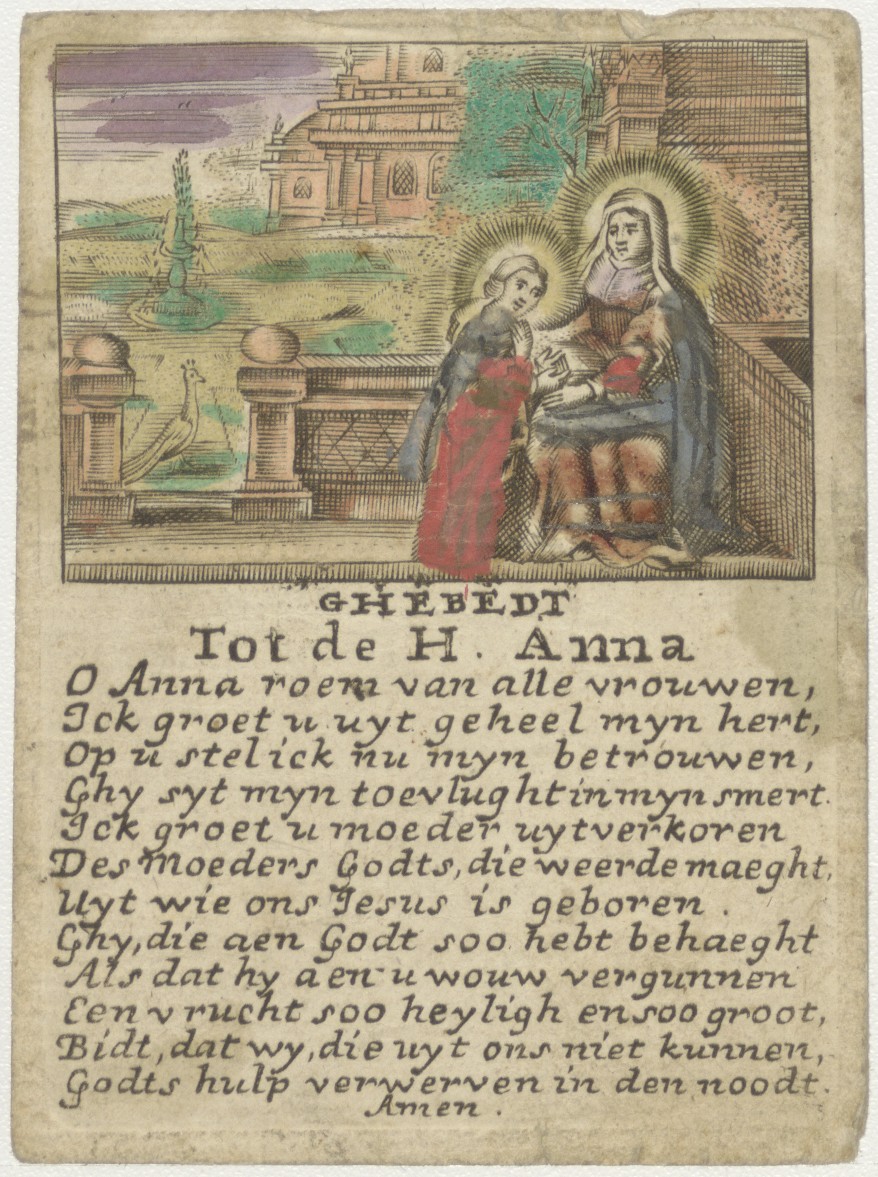 GHEBEDT
Tot de H. Anna
O Anna roem van alle vrouwen,
Ick groet u uyt geheel myn hert,
Op u stel ick nu myn betrouwen,
Ghy syt myn toevlught in myn smert.
Ick groet u moeder uytverkoren
Des Moeders Godts, die weerde maeght,
Uyt wie ons Jesus is geboren.
Ghy, die aen Godt soo hebt behaeght
Als dat hy aen u wouw vergunnen
Een vrucht soo heyligh en soo groot,
Bidt, dat wy, die uyt ons niet kunnen,
Godts hulp verwerven in den noodt.
Amen.